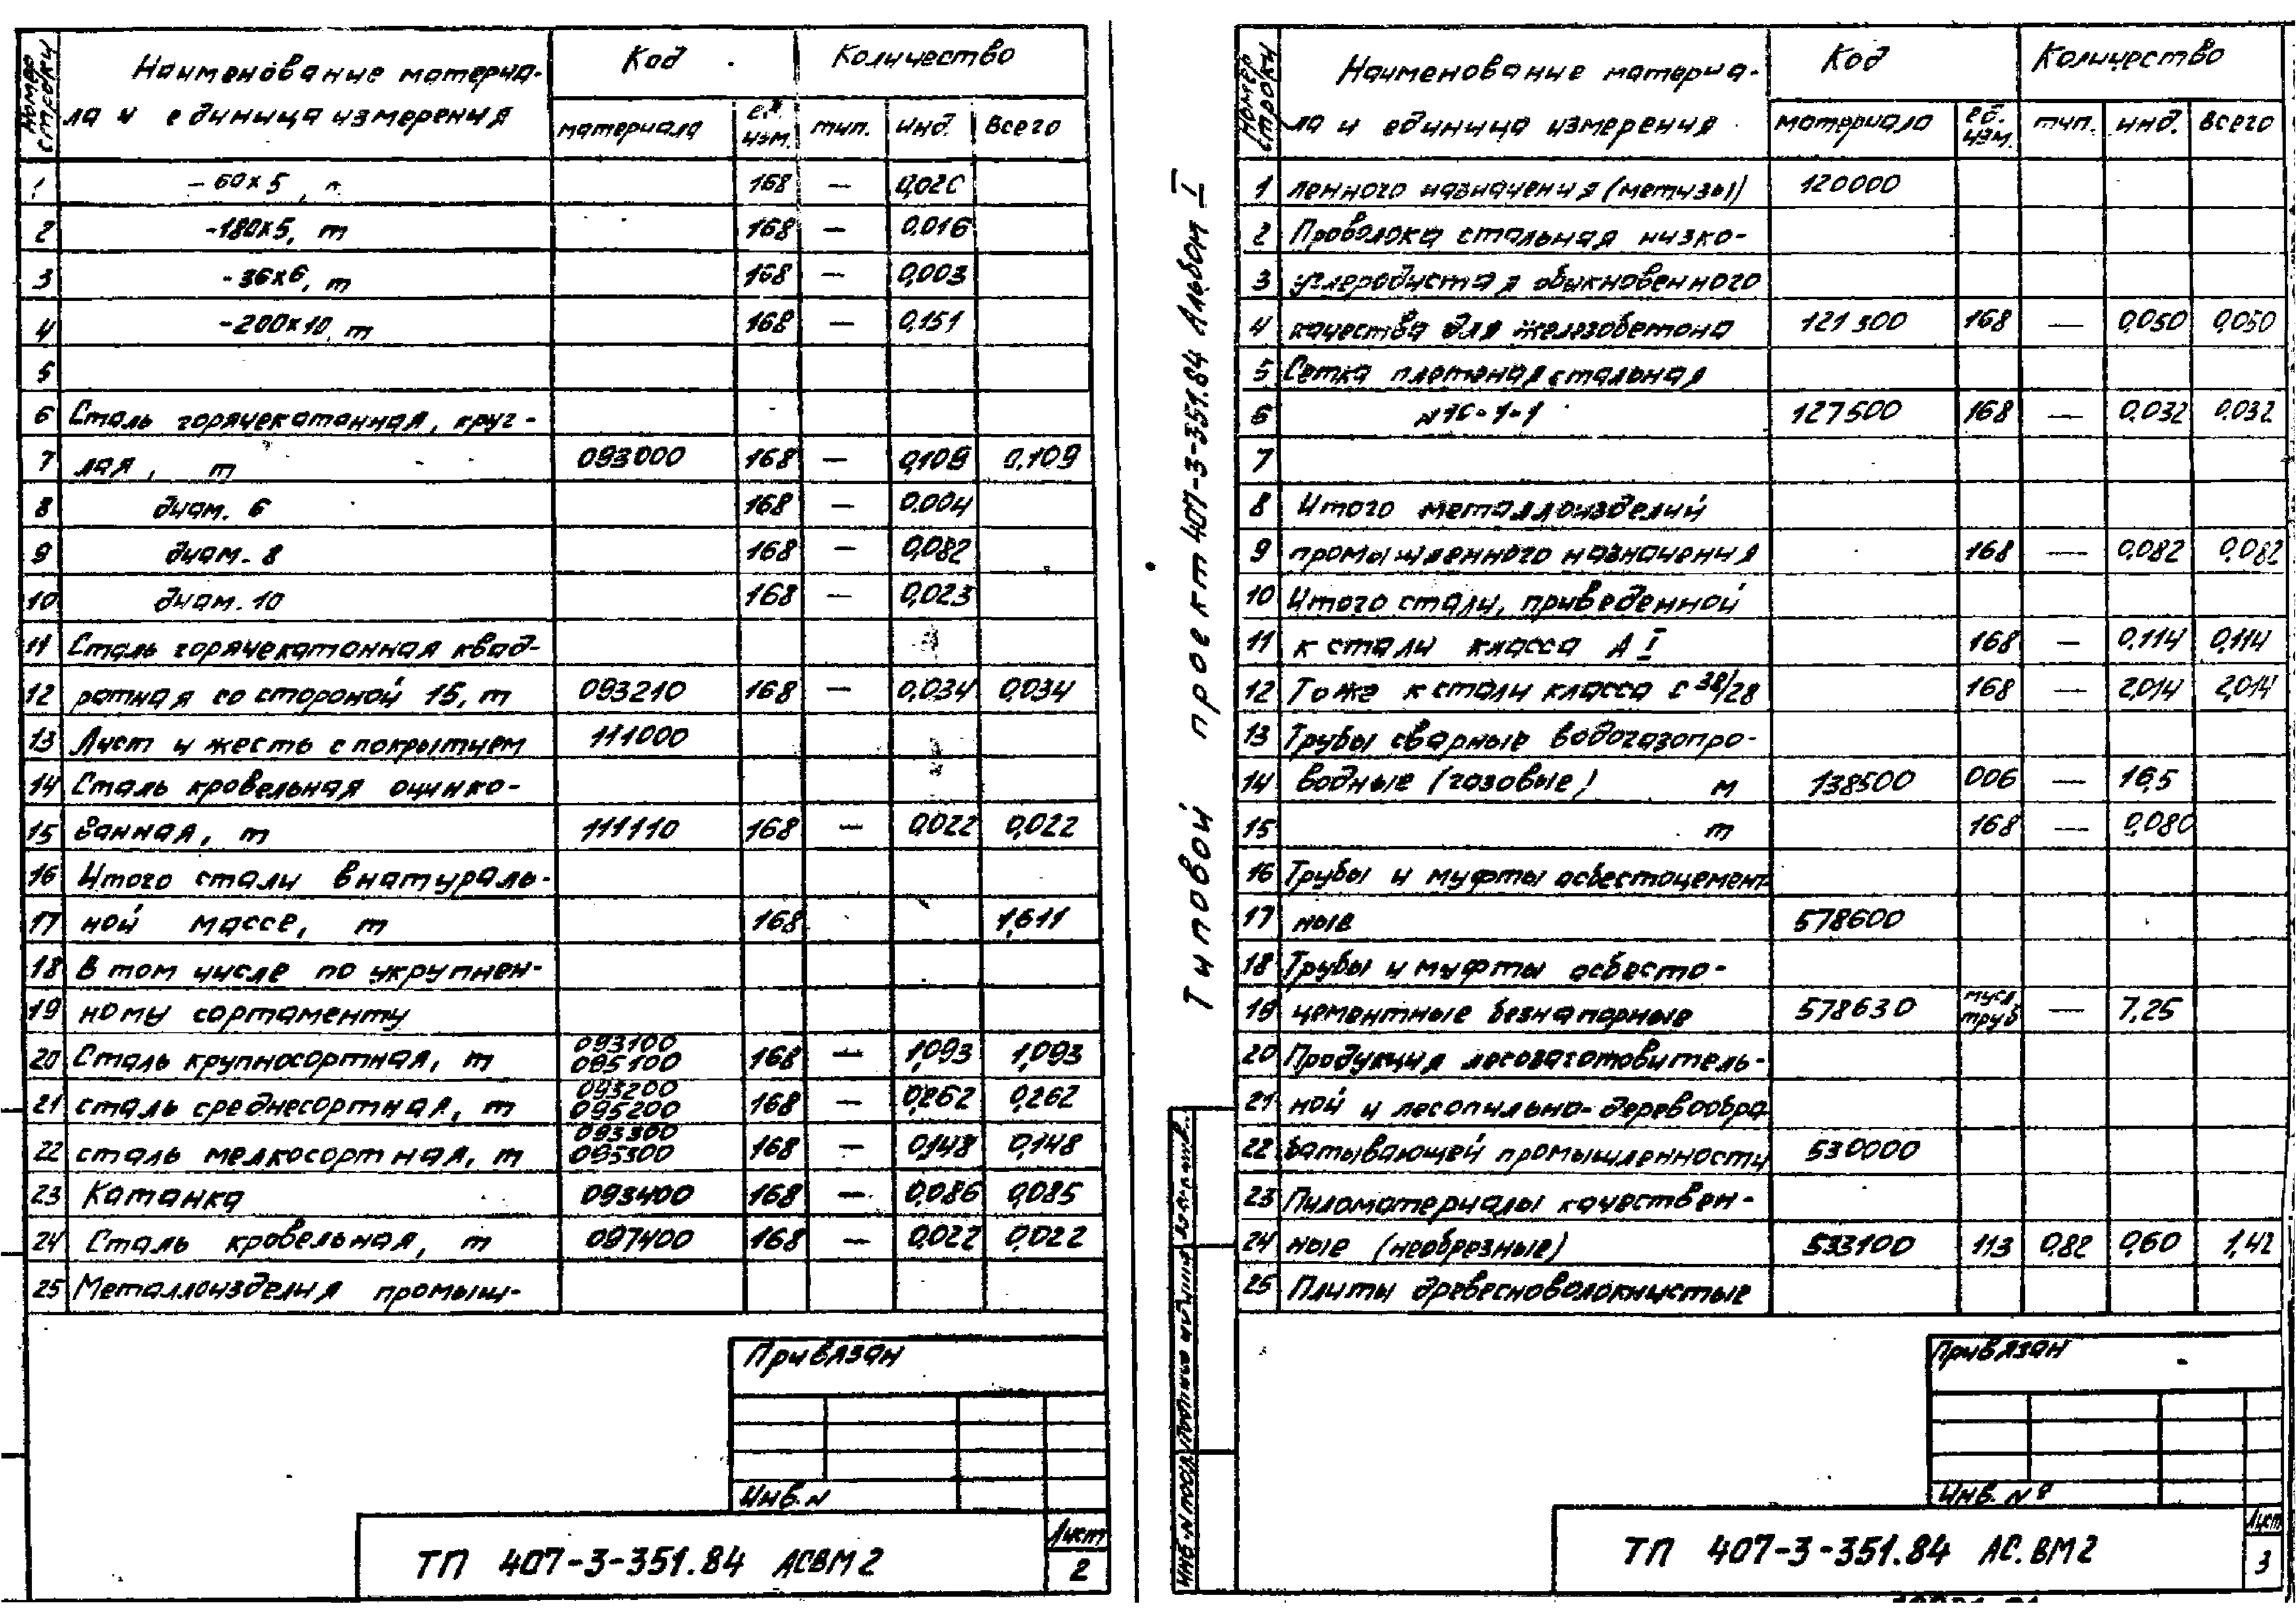 Номер строки | Наименование материа-
ла и единица измерения | Код | Количество
материала | ед. изм. | тип. | инд. | Всего
1 | -60×5, т | 168 | — | 0,020
2 | -180×5, т | 168 | — | 0,016
3 | -36×6, т | 168 | — | 0,003
4 | -200×10, т | 168 | — | 0,151
5
6 | Сталь горячекатанная, круг-
7 | лая, т | 093000 | 168 | — | 0,109 | 0,109
8 | диам. 6 | 168 | — | 0,004
9 | диам. 8 | 168 | — | 0,082
10 | диам. 10 | 168 | — | 0,023
11 | Сталь горячекатанная квад-
12 | ратная со стороной 15, т | 093210 | 168 | — | 0,034 | 0,034
13 | Лист и жесть с покрытием | 111000
14 | Сталь кровельная оцинко-
15 | ванная, т | 111110 | 168 | — | 0,022 | 0,022
16 | Итого стали в натураль-
17 | ной массе, т | 168 | 1,611
18 | В том числе по укрупнен-
19 | ному сортаменту
20 | Сталь крупносортная, т | 093100 095100 | 168 | — | 1,093 | 1,093
21 | сталь среднесортная, т | 093200 095200 | 168 | — | 0,262 | 0,262
22 | сталь мелкосортная, т | 093300 095300 | 168 | — | 0,148 | 0,148
23 | Катанка | 093400 | 168 | — | 0,086 | 0,085
24 | Сталь кровельная, т | 097400 | 168 | — | 0,022 | 0,022
25 | Металлоизделия промыш-
Привязан
Инв. N
ТП 407-3-351.84 АСВМ2
Лист
2
Типовой проект 407-3-351.84 Альбом I
Номер строки | Наименование материа-
ла и единица измерения | Код | Количество
материала | ед. изм. | тип. | инд. | всего
1 | ленного назначения (метизы) | 120000
2 | Проволока стальная низко-
3 | углеродистая обыкновенного
4 | качества для железобетона | 121300 | 168 | — | 0,050 | 0,050
5 | Сетка плетеная стальная
6 | 127500 | 168 | — | 0,032 | 0,032
7
8 | Итого металлоизделий
9 | промышленного назначения | 168 | — | 0,082 | 0,082
10 | Итого стали, приведенной
11 | к стали класса А I | 168 | — | 0,114 | 0,114
12 | То же к стали класса С 38/28 | 168 | — | 2,014 | 2,014
13 | Трубы сварные водогазопро-
14 | водные (газовые) м | 138500 | 006 | — | 16,5
15 | т | 168 | — | 0,080
16 | Трубы и муфты асбестоцемент-
17 | ные | 578600
18 | Трубы и муфты асбесто-
19 | цементные безнапорные | 578630 | труб | — | 7,25
20 | Продукция лесозаготовитель-
21 | ной и лесопильно-деревообра
22 | батывающей промышленности | 530000
23 | Пиломатериалы качествен-
24 | ные (необрезные) | 533100 | 113 | 0,82 | 0,60 | 1,42
25 | Плиты древесноволокнистые
Привязан
Инв. №
ТП 407-3-351.84 АС.ВМ2
Лист
3
Инв. N подл. Подпись и дата Взам. инв.